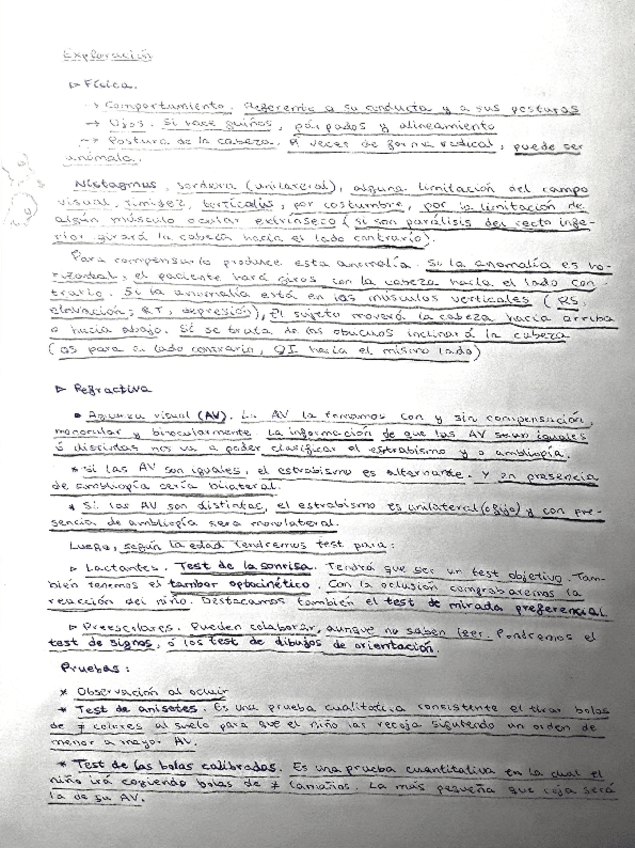 Exploración
▷ Física.
→ Comportamiento. Referente a su conducta y a sus posturas
→ Ojos. Si hace guiños, párpados y alineamiento
→ Postura de la cabeza. A veces de forma radical, puede ser
anómala.
Nistagmus, sordera (unilateral), alguna limitación del campo
visual, timidez, tortícolis, por costumbre, por la limitación de
algún músculo ocular extrínseco (si son parálisis del recto infe-
rior girará la cabeza hacia el lado contrario).
Para compensarlo produce esta anomalía. Si la anomalía es ho-
rizontal, el paciente hará giros con la cabeza hacia el lado con-
trario. Si la anomalía está en los músculos verticales (RS,
elevación; RI, depresión), el sujeto moverá la cabeza hacia arriba
o hacia abajo. Si se trata de los oblicuos inclinará la cabeza
(OS para el lado contrario, OI hacia el mismo lado)
▷ Refractiva
• Agudeza visual (AV). La AV la tomamos con y sin compensación,
monocular y binocularmente. La información de que las AV sean iguales
ó distintas nos va a poder clasificar el estrabismo y o ambliopía.
* Si las AV son iguales, el estrabismo es alternante. Y en presencia
de ambliopía sería bilateral.
* Si las AV son distintas, el estrabismo es unilateral (o fijo) y con pre-
sencia de ambliopía será monolateral.
Luego, según la edad tendremos test para:
▷ Lactantes. Test de la sonrisa. Tendrá que ser un test objetivo. Tam-
bién tenemos el tambor optocinético. Con la oclusión comprobaremos la
reacción del niño. Destacamos también el test de mirada preferencial.
▷ Preescolares. Pueden colaborar, aunque no saben leer. Pondremos el
test de signos, ó los test de dibujos de orientación.
Pruebas:
* Observación al ocluir
* Test de anisetes. Es una prueba cualitativa consistente el tirar bolas
de ≠ colores al suelo para que el niño las recoja siguiendo un orden de
menor a mayor AV.
* Test de las bolas calibradas. Es una prueba cuantitativa en la cual el
niño irá cogiendo bolas de ≠ tamaños. La más pequeña que coja será
la de su AV.